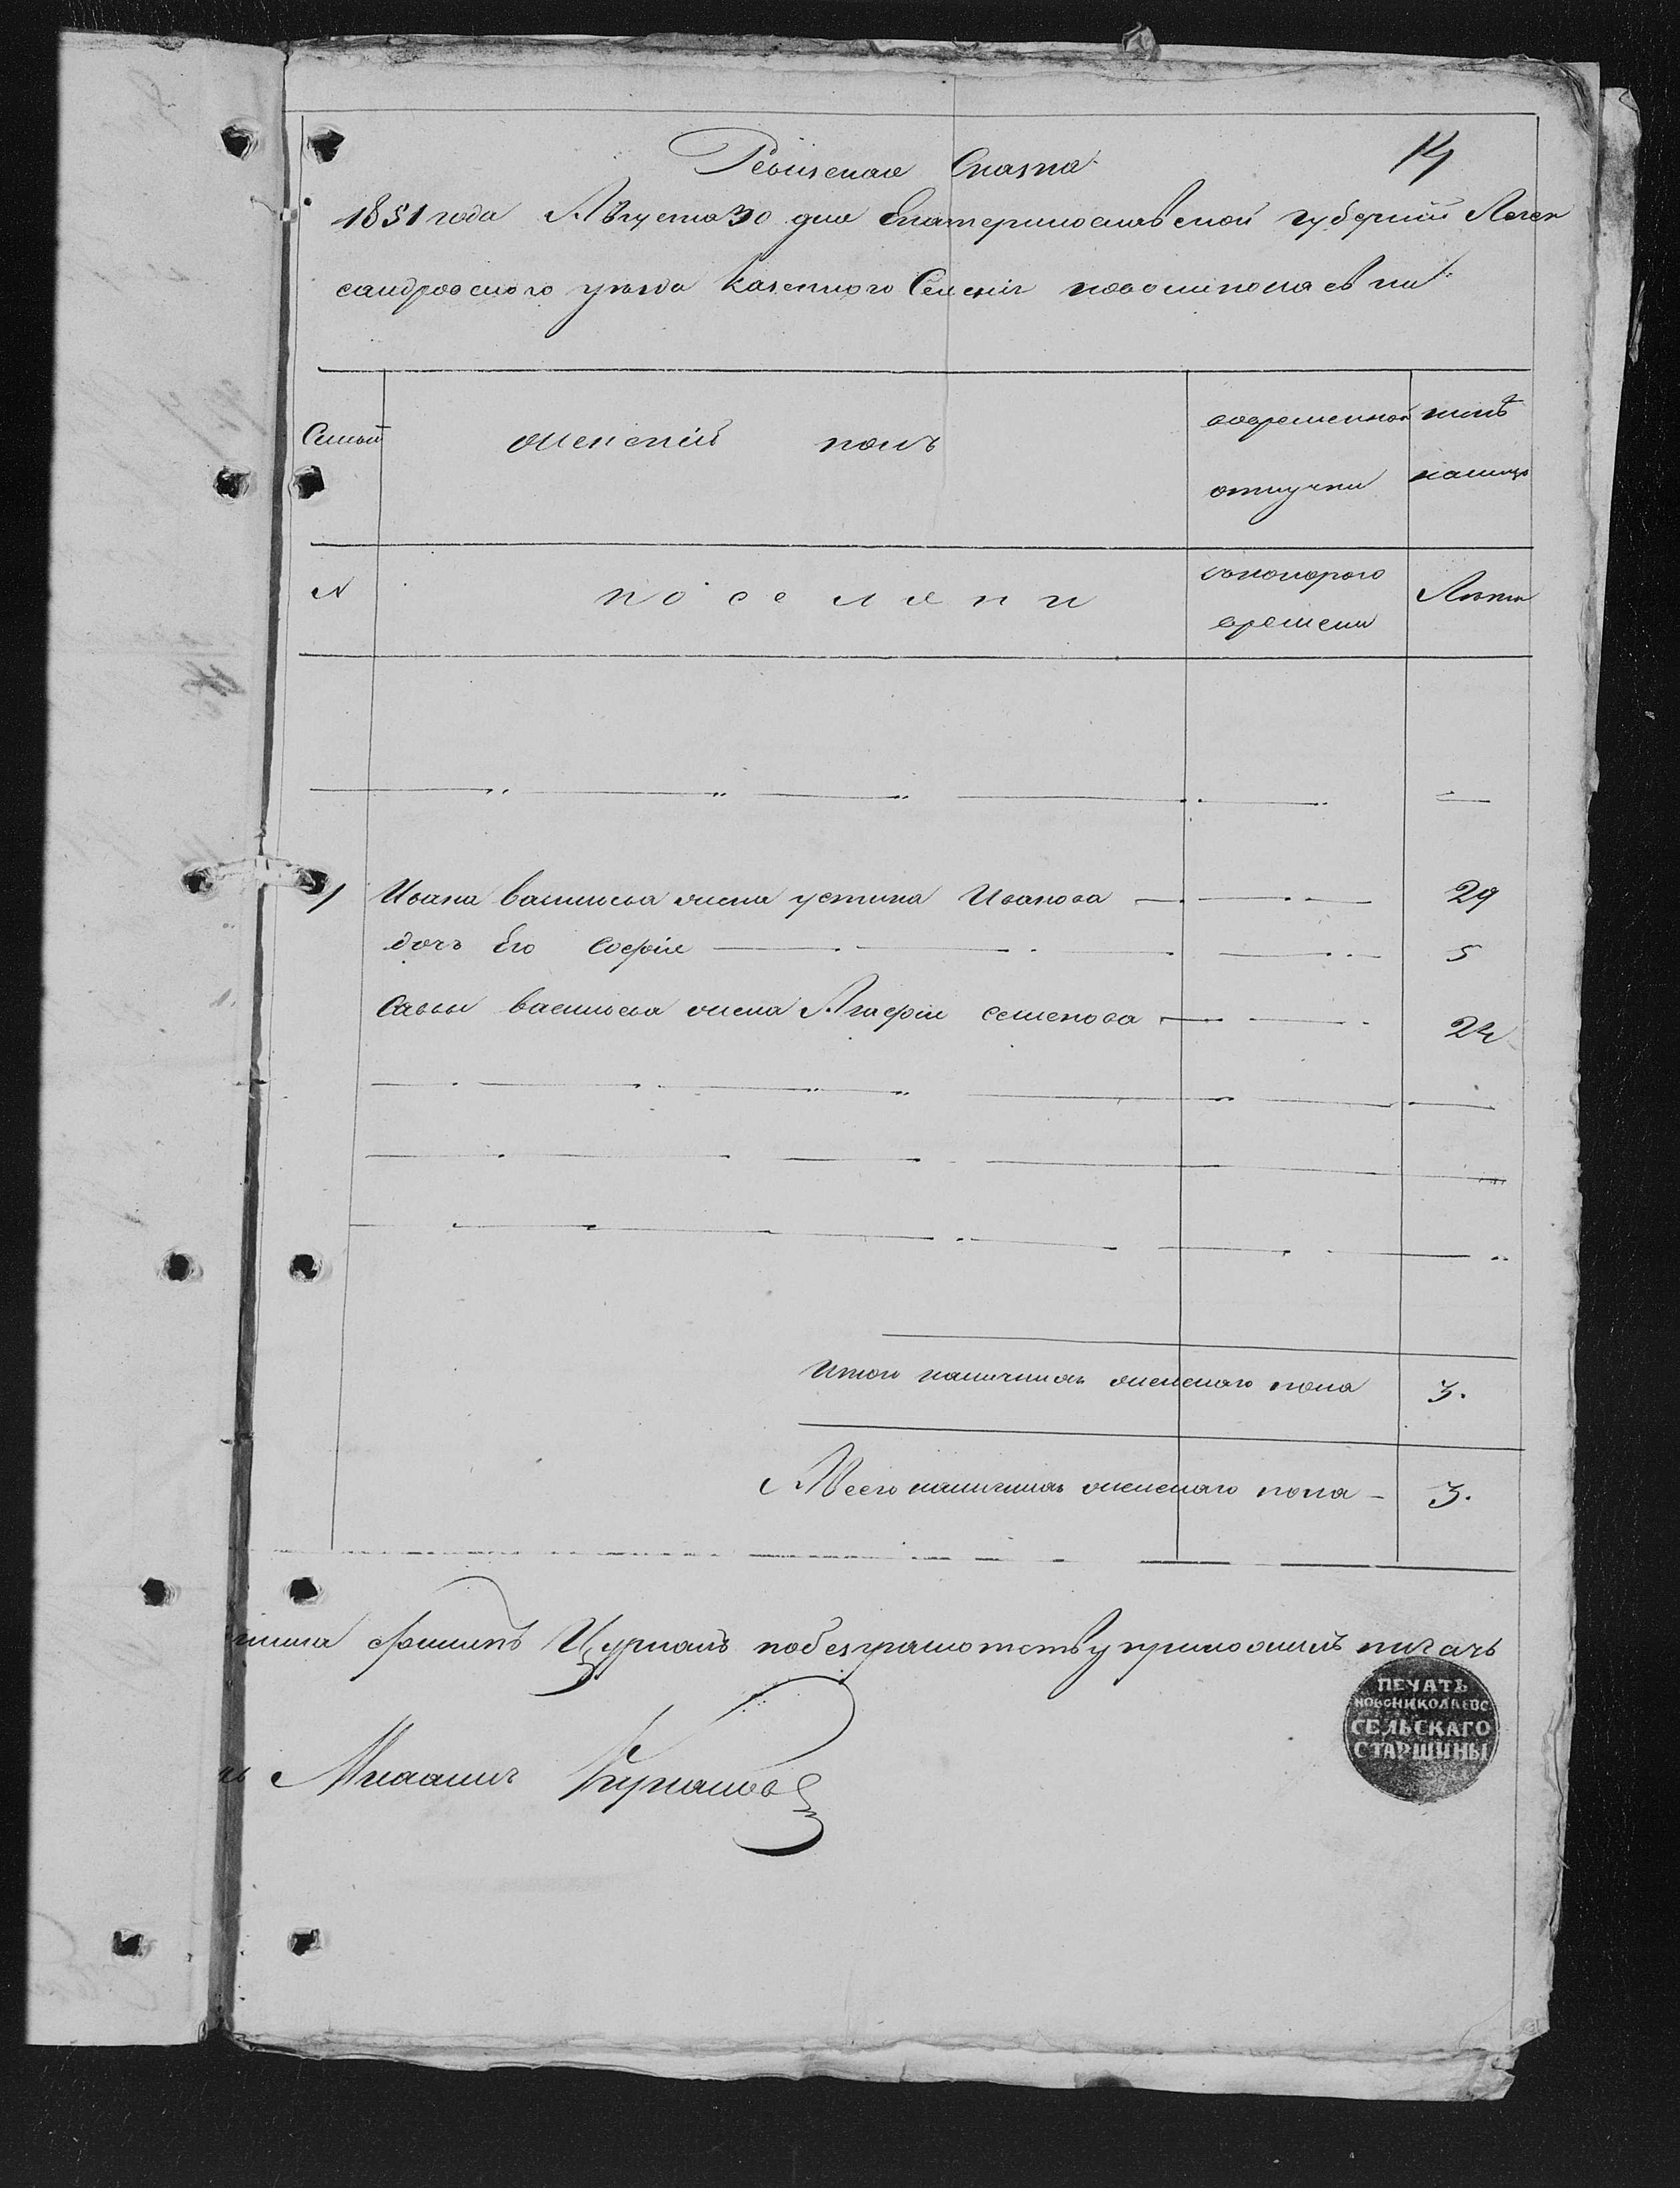 Ревизская Сказка
14
1851 года Августа 30 дня Екатеринославской губернии Алек
сандровского уезда Казенного Селения новониколаевки
Семьи
женский полъ
вовременной
отлучки
ныне
налицо
N
поселяни
скоторого
времени
Лета
1 Ивана васильева жена устина Иванова 29
дочь Его София 5
Савы васильева жена Агафия семенова 24
Итого наличных женскаго пола 3.
Всего наличных женскаго пола 3.
шина Филипъ Цурканъ побезграмотству приложилъ печать
ПЕЧАТЬ
НОВОНИКОЛАЕВС
СЕЛЬСКАГО
СТАРШИНЫ